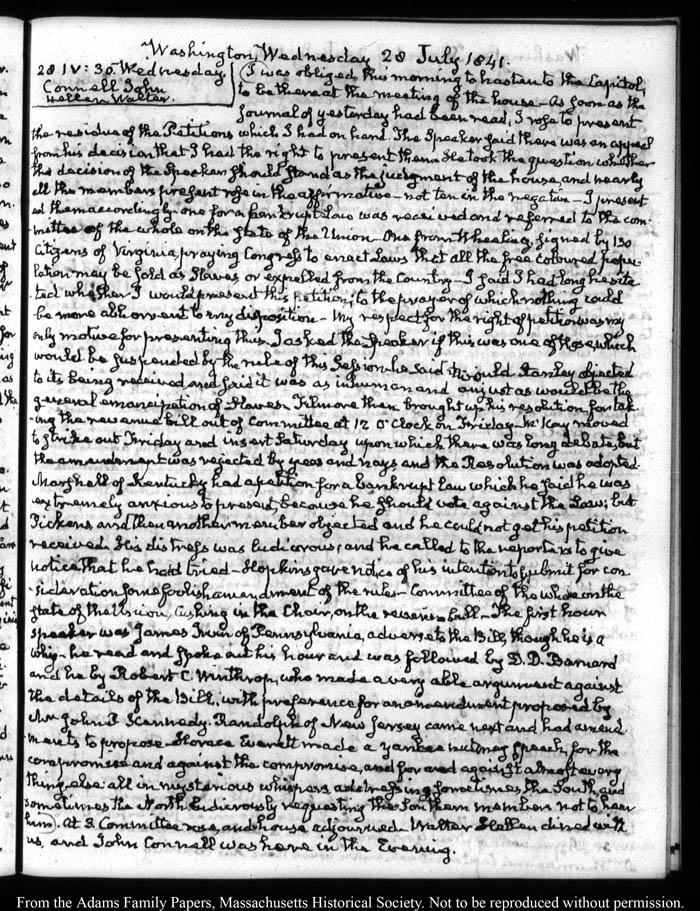 Washington, Wednesday 28 July 1841.
28 IV: 30. Wednesday
Connell John
Hellen Walter.
I was obliged this morning to hasten to the Capitol,
to be there at the meeting of the house — As soon as the
journal of yesterday had been read, I rose to present
the residue of the Petitions which I had on hand. The Speaker said there was an appeal
from his decision that I had the right to present them. He took the question whether
the decision of the Speaker should stand as the judgment of the house, and nearly
all the members present rose in the affirmative — not ten in the negative — I present
ed them accordingly. one for a bankrupt Law was received and referred to the com-
mittee of the whole on the State of the Union. One from Wheeling, signed by 130
Citizens of Virginia, praying Congress to enact Laws that all the free coloured popu-
lation may be sold as Slaves, or expelled from the Country — I said I had long hesita
ted whether I would present this petition; to the prayer of which nothing could
be more abhorrent to my disposition — My respect for the right of petition was my
only motive for presenting this. I asked the Speaker if this was one of those which
would be suspended by the rule of this Session. he said it would. Stanley objected
to its being received and said it was as inhuman and unjust as would be the
general emancipation of Slaves. Filmore then brought up his resolution for tak-
ing the revenue bill out of Committee at 12 O'Clock on Friday. McKay moved
to strike out Friday and insert Saturday upon which there was long debate, but
the amendment was rejected by yeas and nays and the Resolution was adopted.
Marshall of Kentucky had a petition for a bankrupt Law which he said he was
extremely anxious to present, because he should vote against the Law; but
Pickens, and then another member objected and he could not get his petition
received. His distress was ludicrous, and he called to the reporters to give
notice that he had tried — Hopkins gave notice of his intention to submit for con
-sideration some foolish amendment of the rules — Committee of the whole on the
State of the Union, Cushing in the Chair, on the revenue bill — The first hour
speaker was James Irwin of Pennsylvania, adverse to the Bill, though he is a
whig — he read and spoke out his hour and was followed by D. D. Barnard
and he by Robert C. Winthrop, who made a very able argument against
the details of the Bill, with preference for an amendment proposed by
Mr John P. Kennedy. Randolph of New Jersey came next and had amend-
ments to propose. Horace Everett made a Yankee nutmeg speech, for the
compromise and against the compromise, and for and against almost every
thing else all in mysterious whispers addressing sometimes the South, and
sometimes the North ludicrously requesting the Southern members not to hear
him). At 3 Committee rose, and house adjourned. Walter Hellen dined with
us, and John Connell was here in the Evening.
From the Adams Family Papers, Massachusetts Historical Society. Not to be reproduced without permission.